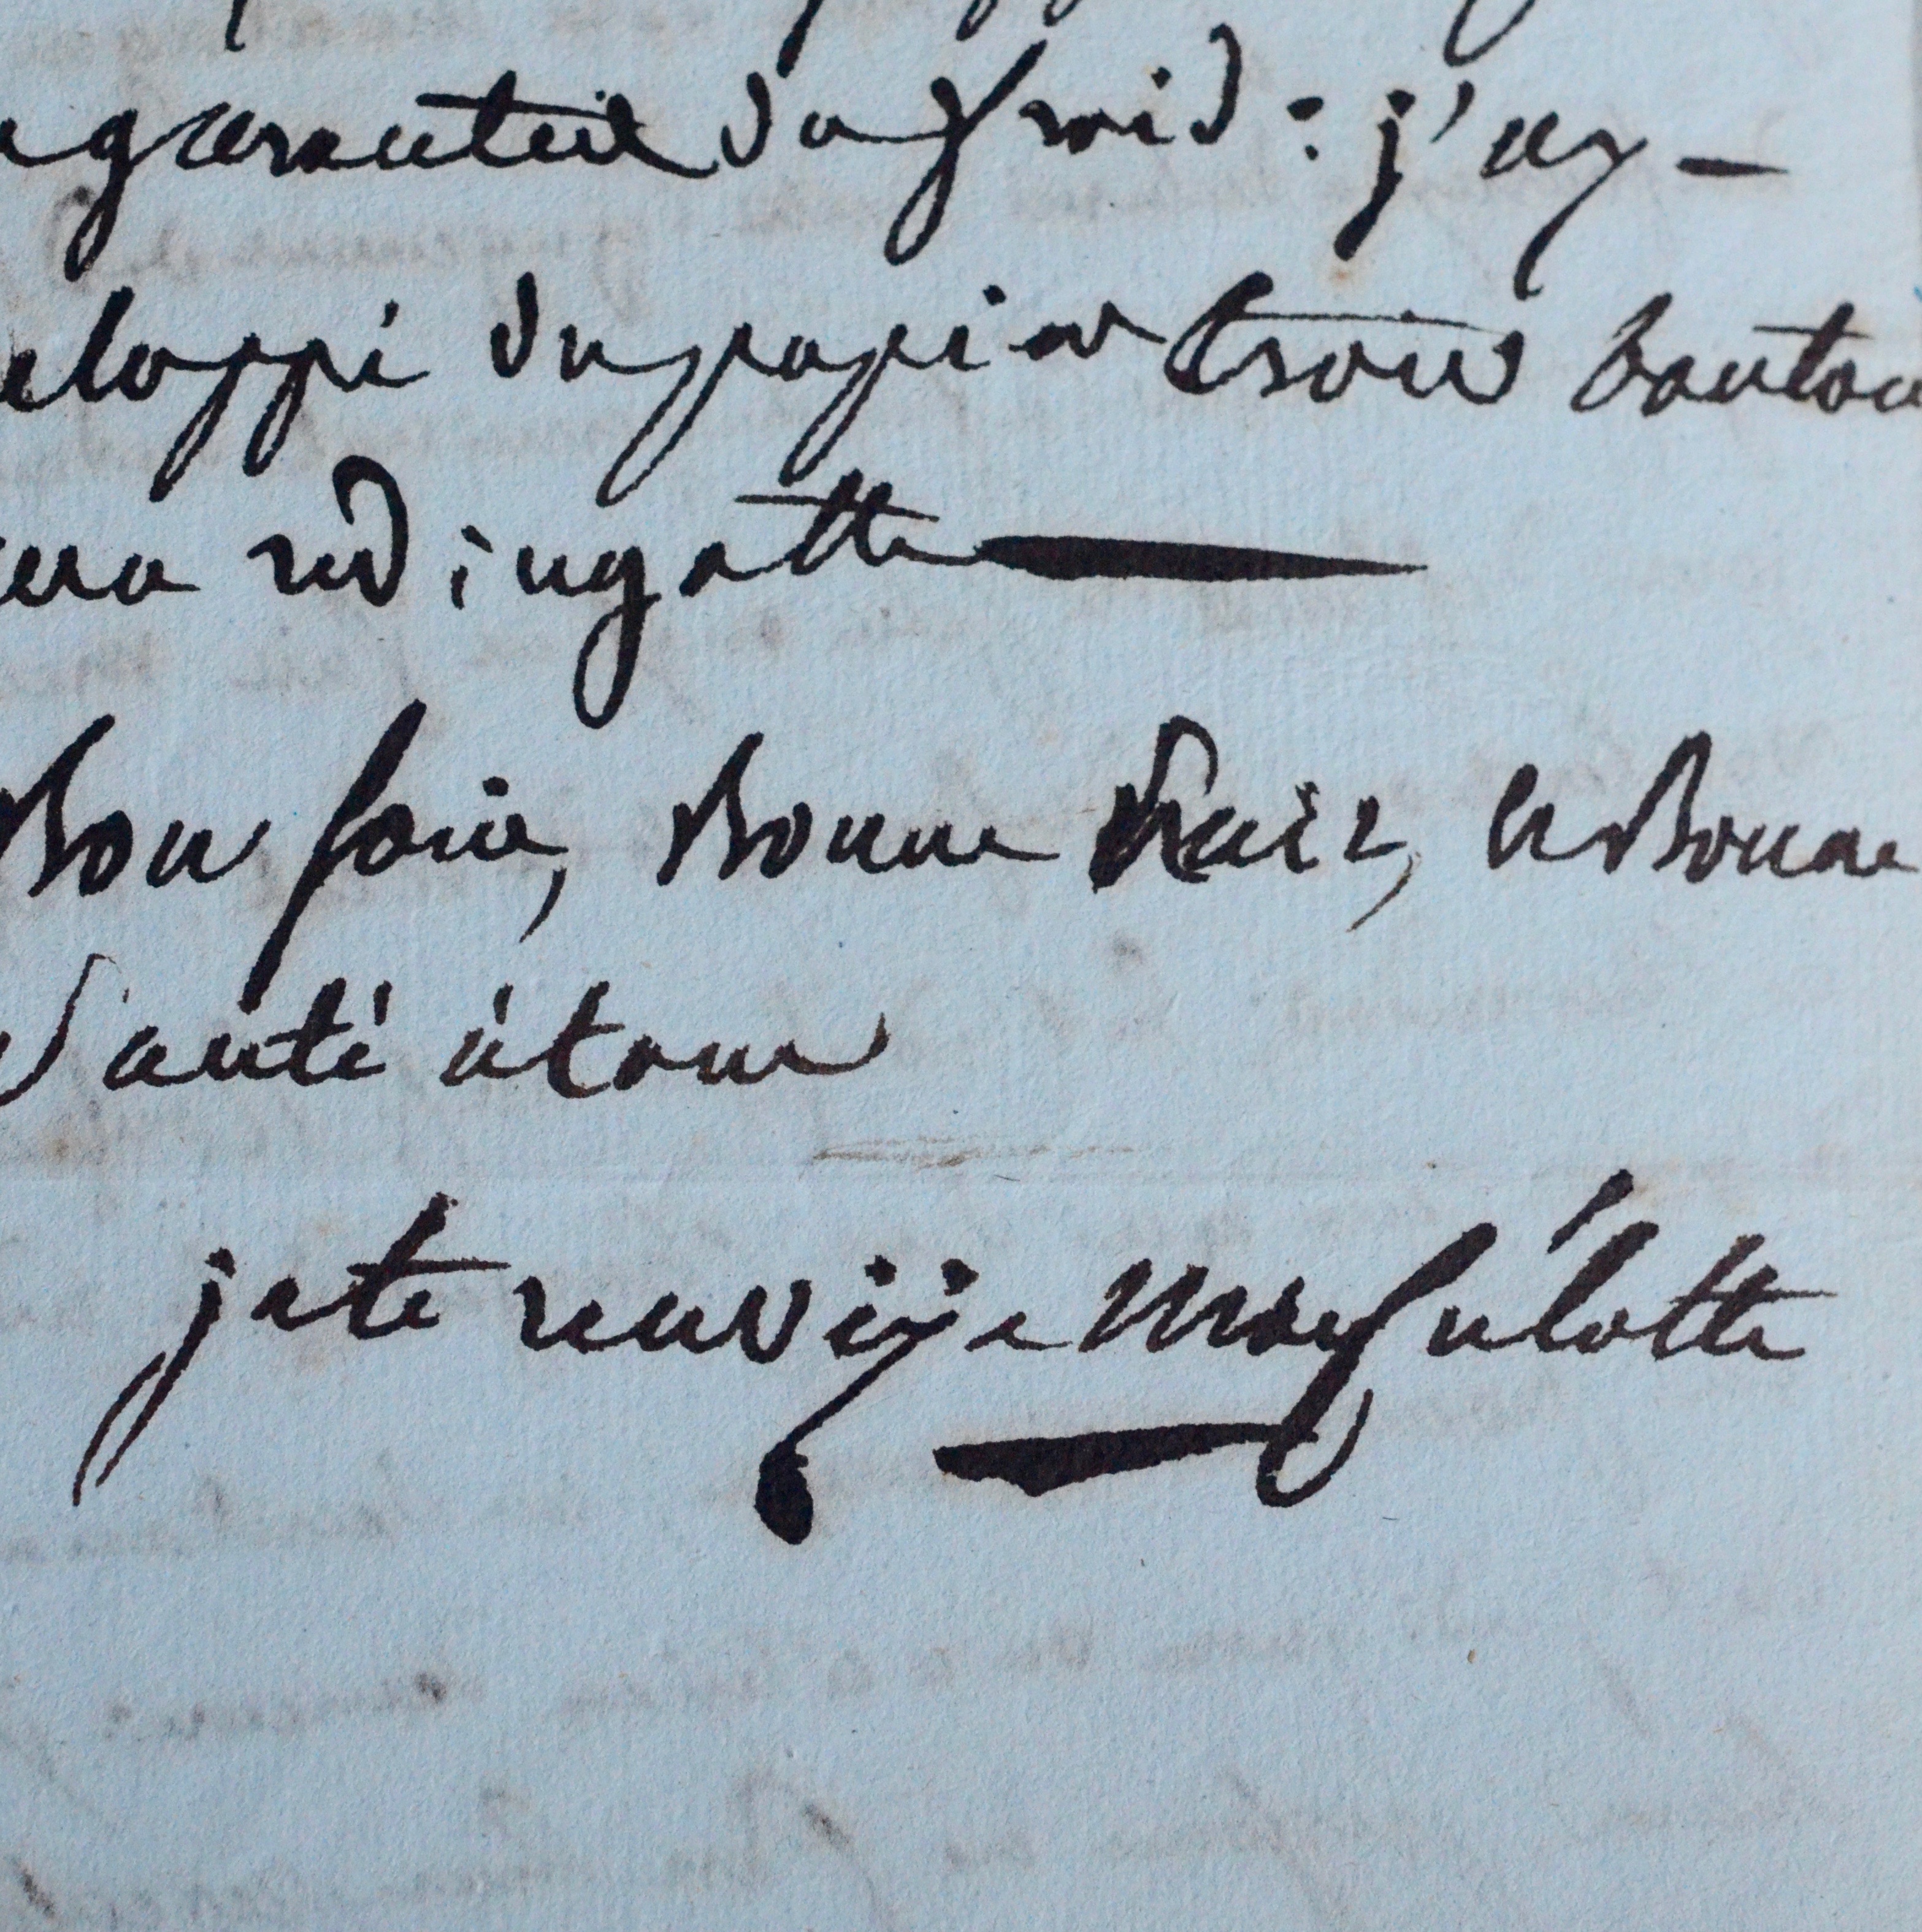 garentir du froid : j'ay —
eloppé du papier trois bouton
ma redingotte —
Bon soir, Bonne Nuit, et Bonne
Santé à tous
je te renvoije